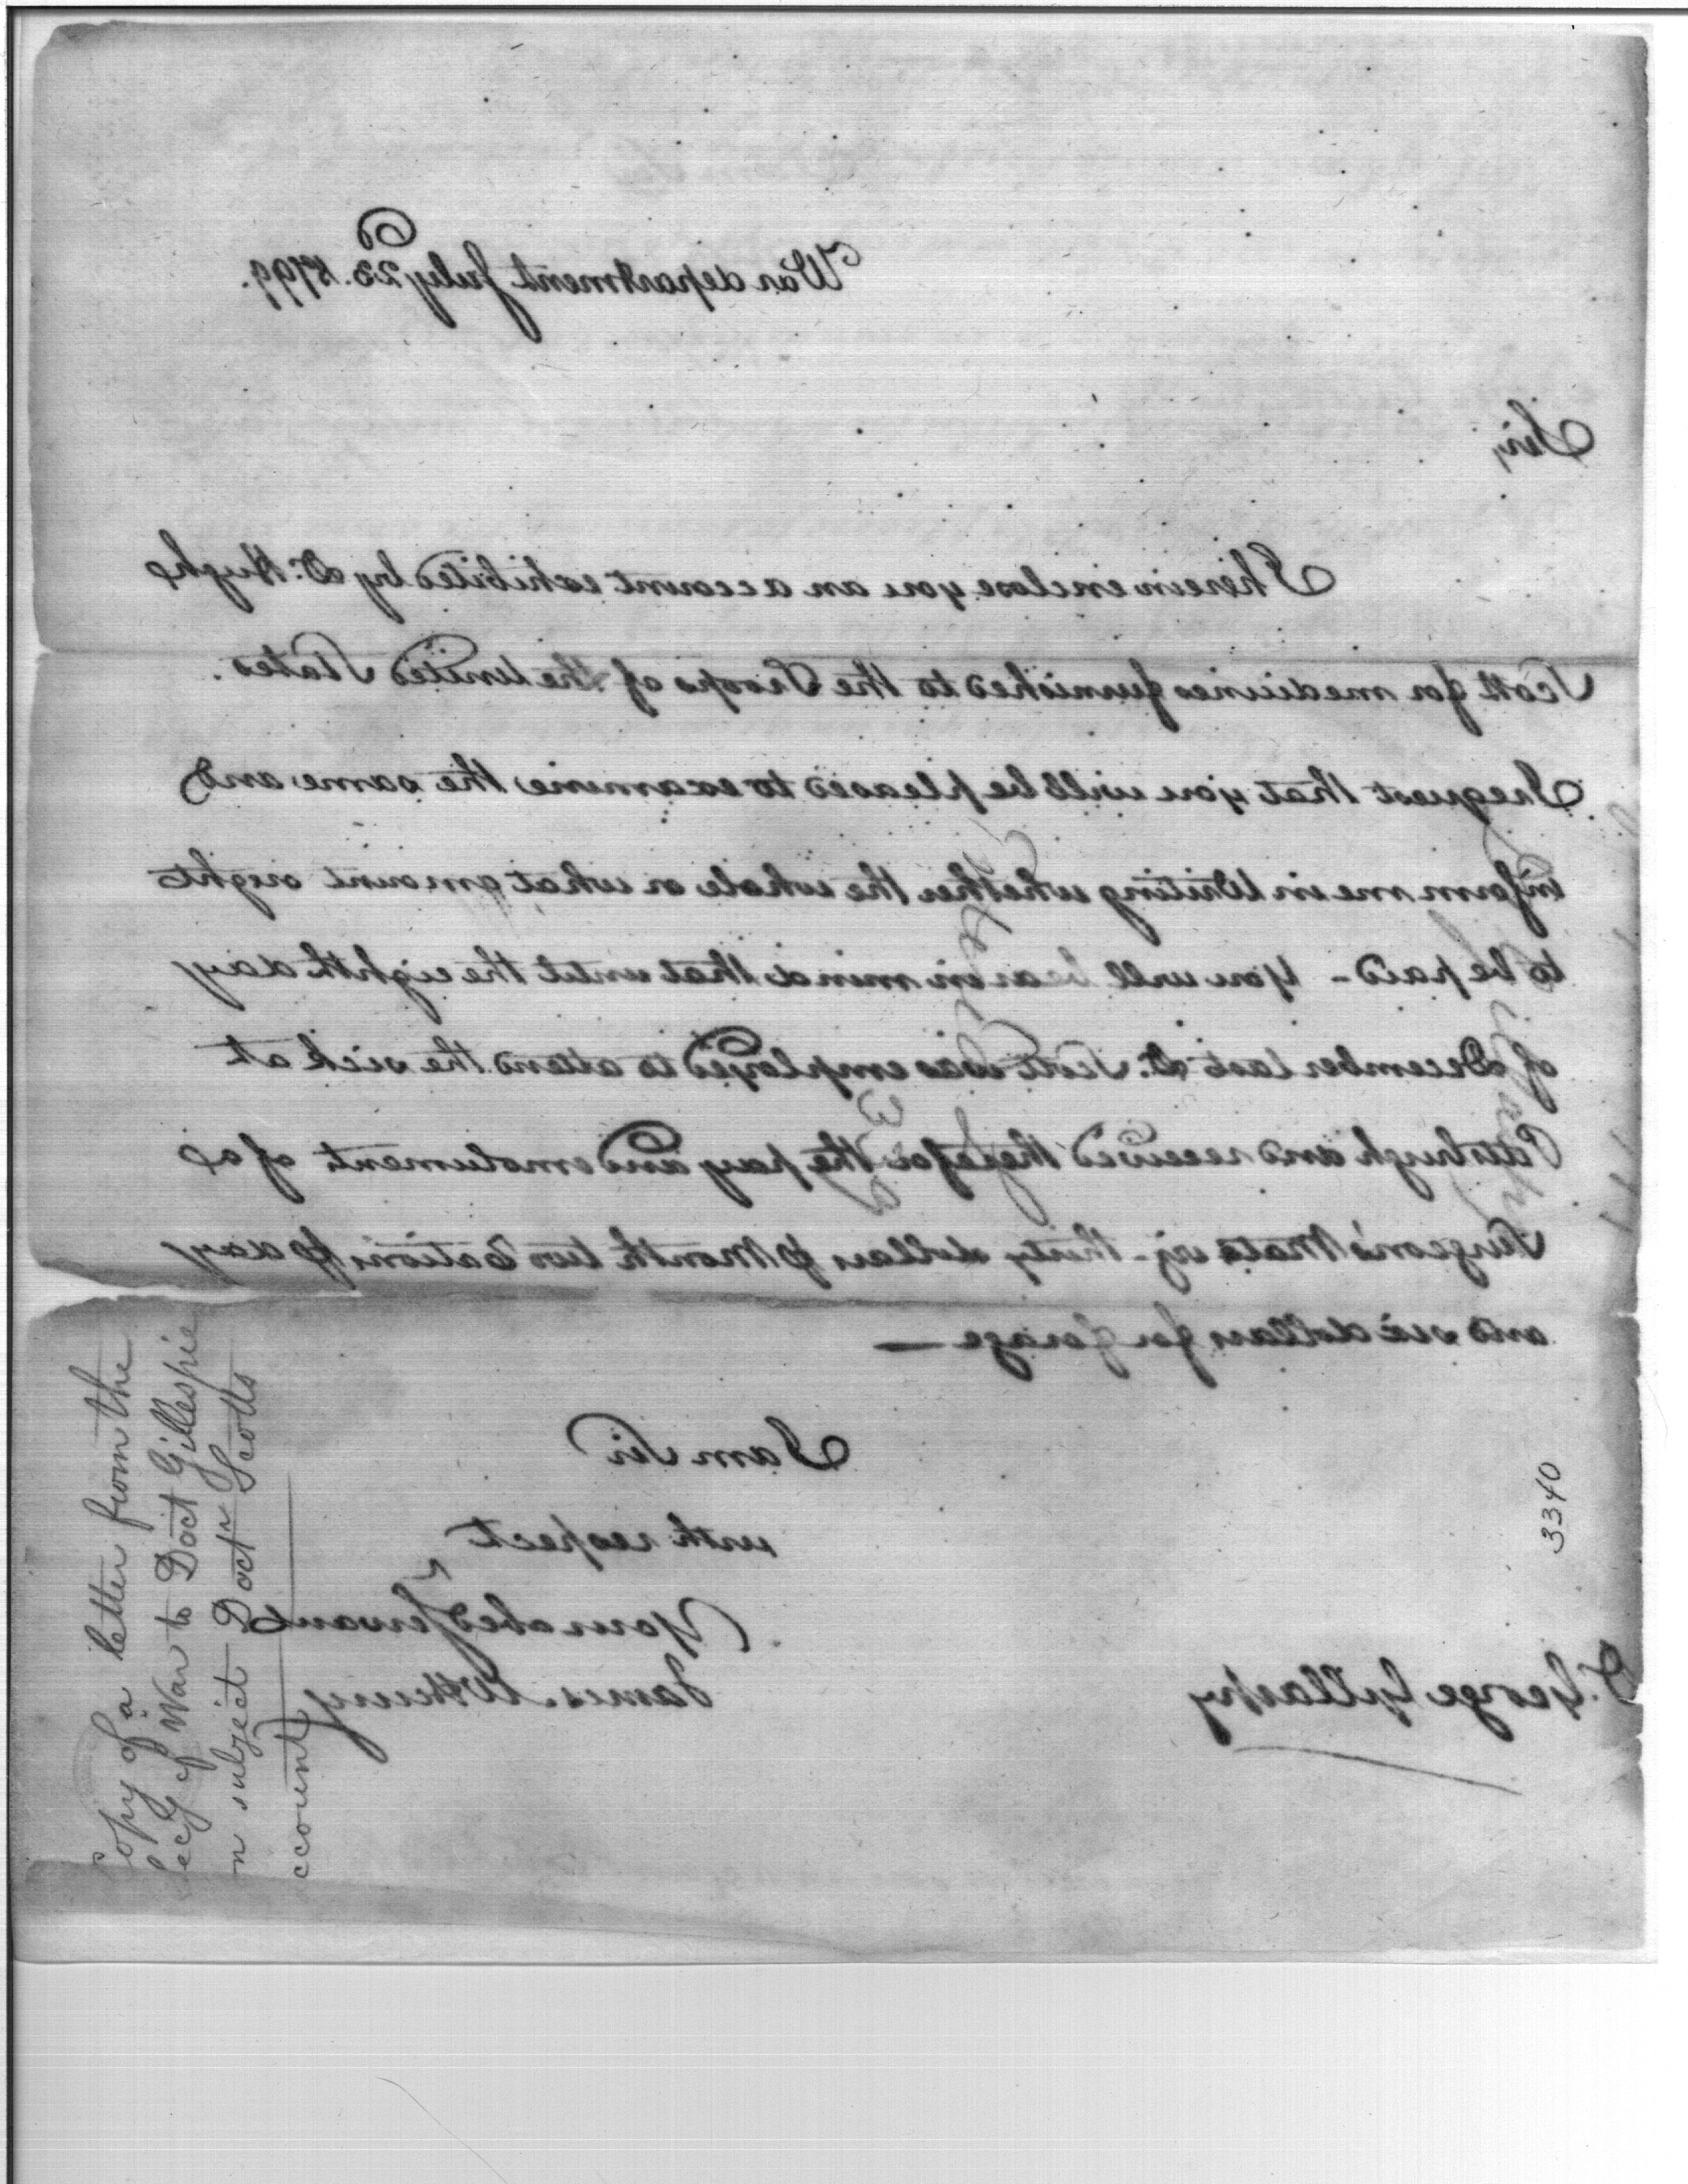 War department July 23d. 1799.
Sir,
I herein enclose you an account exhibited by Dr. Hugh
Scott for medicines furnished to the Troops of the United States.
I request that you will be pleased to examine the same and
inform me in Writing whether the whole or what amount ought
to be paid - You will bear in mind that until the eighth day
of December last Dr. Scott was employed to attend the sick at
Pittsburgh and received therefor the pay and emolument of a
Surgeon's Mate viz - thirty dollars p month two Rations p day
and six dollars for forage —
I am Sir
with respect
Your obed Servant
James McHenry
D. George Gillaspy
Copy of a letter from the
Secy of War to Doct Gillespie
on subject Doctr Scotts
ccount
3340